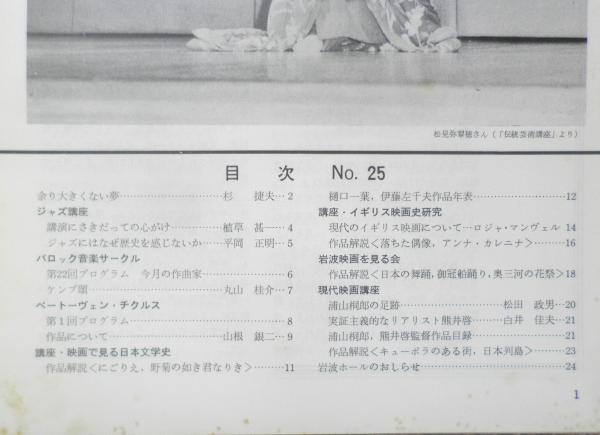 松見弥翠穂さん(「伝統芸術講座」より)
目 次 No. 25
余り大きくない夢……………………杉 捷夫…2
ジャズ講座
講演にさきだっての心がけ…………植草 甚一…4
ジャズにはなぜ歴史を感じないか……平岡 正明…5
バロック音楽サークル
第22回プログラム 今月の作曲家…………………6
ケンプ頌……………………丸山 桂介…7
ベートーヴェン・チクルス
第1回プログラム……………………8
作品について……………………山根 銀二…9
講座・映画で見る日本文学史
作品解説<にごりえ,野菊の如き君なりき>…………11
樋口一葉,伊藤左千夫作品年表……………………12
講座・イギリス映画史研究
現代のイギリス映画について…ロジャ・マンヴェル 14
作品解説<落ちた偶像,アンナ・カレニナ>…………16
岩波映画を見る会
作品解説<日本の舞踊,御冠船踊り,奥三河の花祭>18
現代映画講座
浦山桐郎の足跡……………………松田 政男…20
実証主義的なリアリスト熊井啓………白井 佳夫…21
浦山桐郎,熊井啓監督作品目録……………………21
作品解説<キューポラのある街,日本列島>…………23
岩波ホールのおしらせ……………………24
1